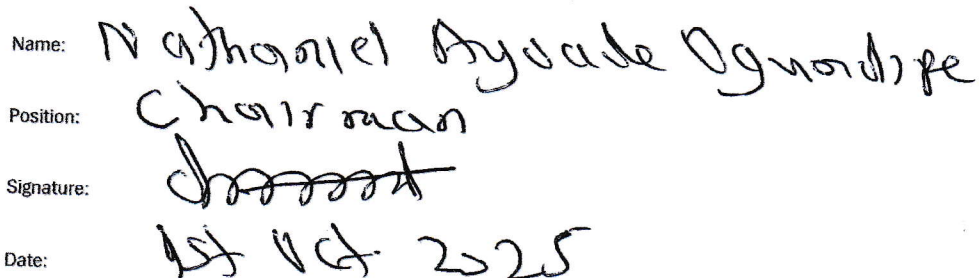 Name: Nathaniel Ayoade Ogundipe
Position: Chairman
Signature:
Date: 1st Oct 2025